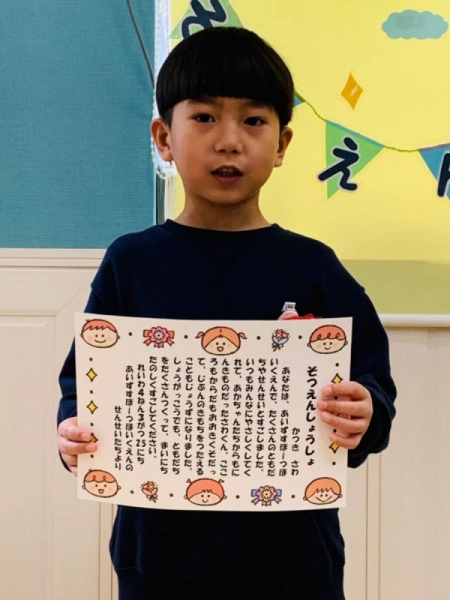 え
そつえんしょうしょ
かつき　さわ
あなたは、あいずすぽーつほ
いくえんで、たくさんのともだ
ちやせんせいとすごしました。
いつもみんなにやさしくしてく
れて、あかちゃんだちからもに
んきものだったさわくん。ここ
ろもからだもおおきくそだっ
て、じぶんのきもちをつたえる
こともじょうずになりました。
しょうがっこうでも、ともだち
をたくさんつくって、まいにち
たのしくすごしてください。
れいわ4ねん3がつ
あいずすぽーつほいくえんの
せんせいたちより